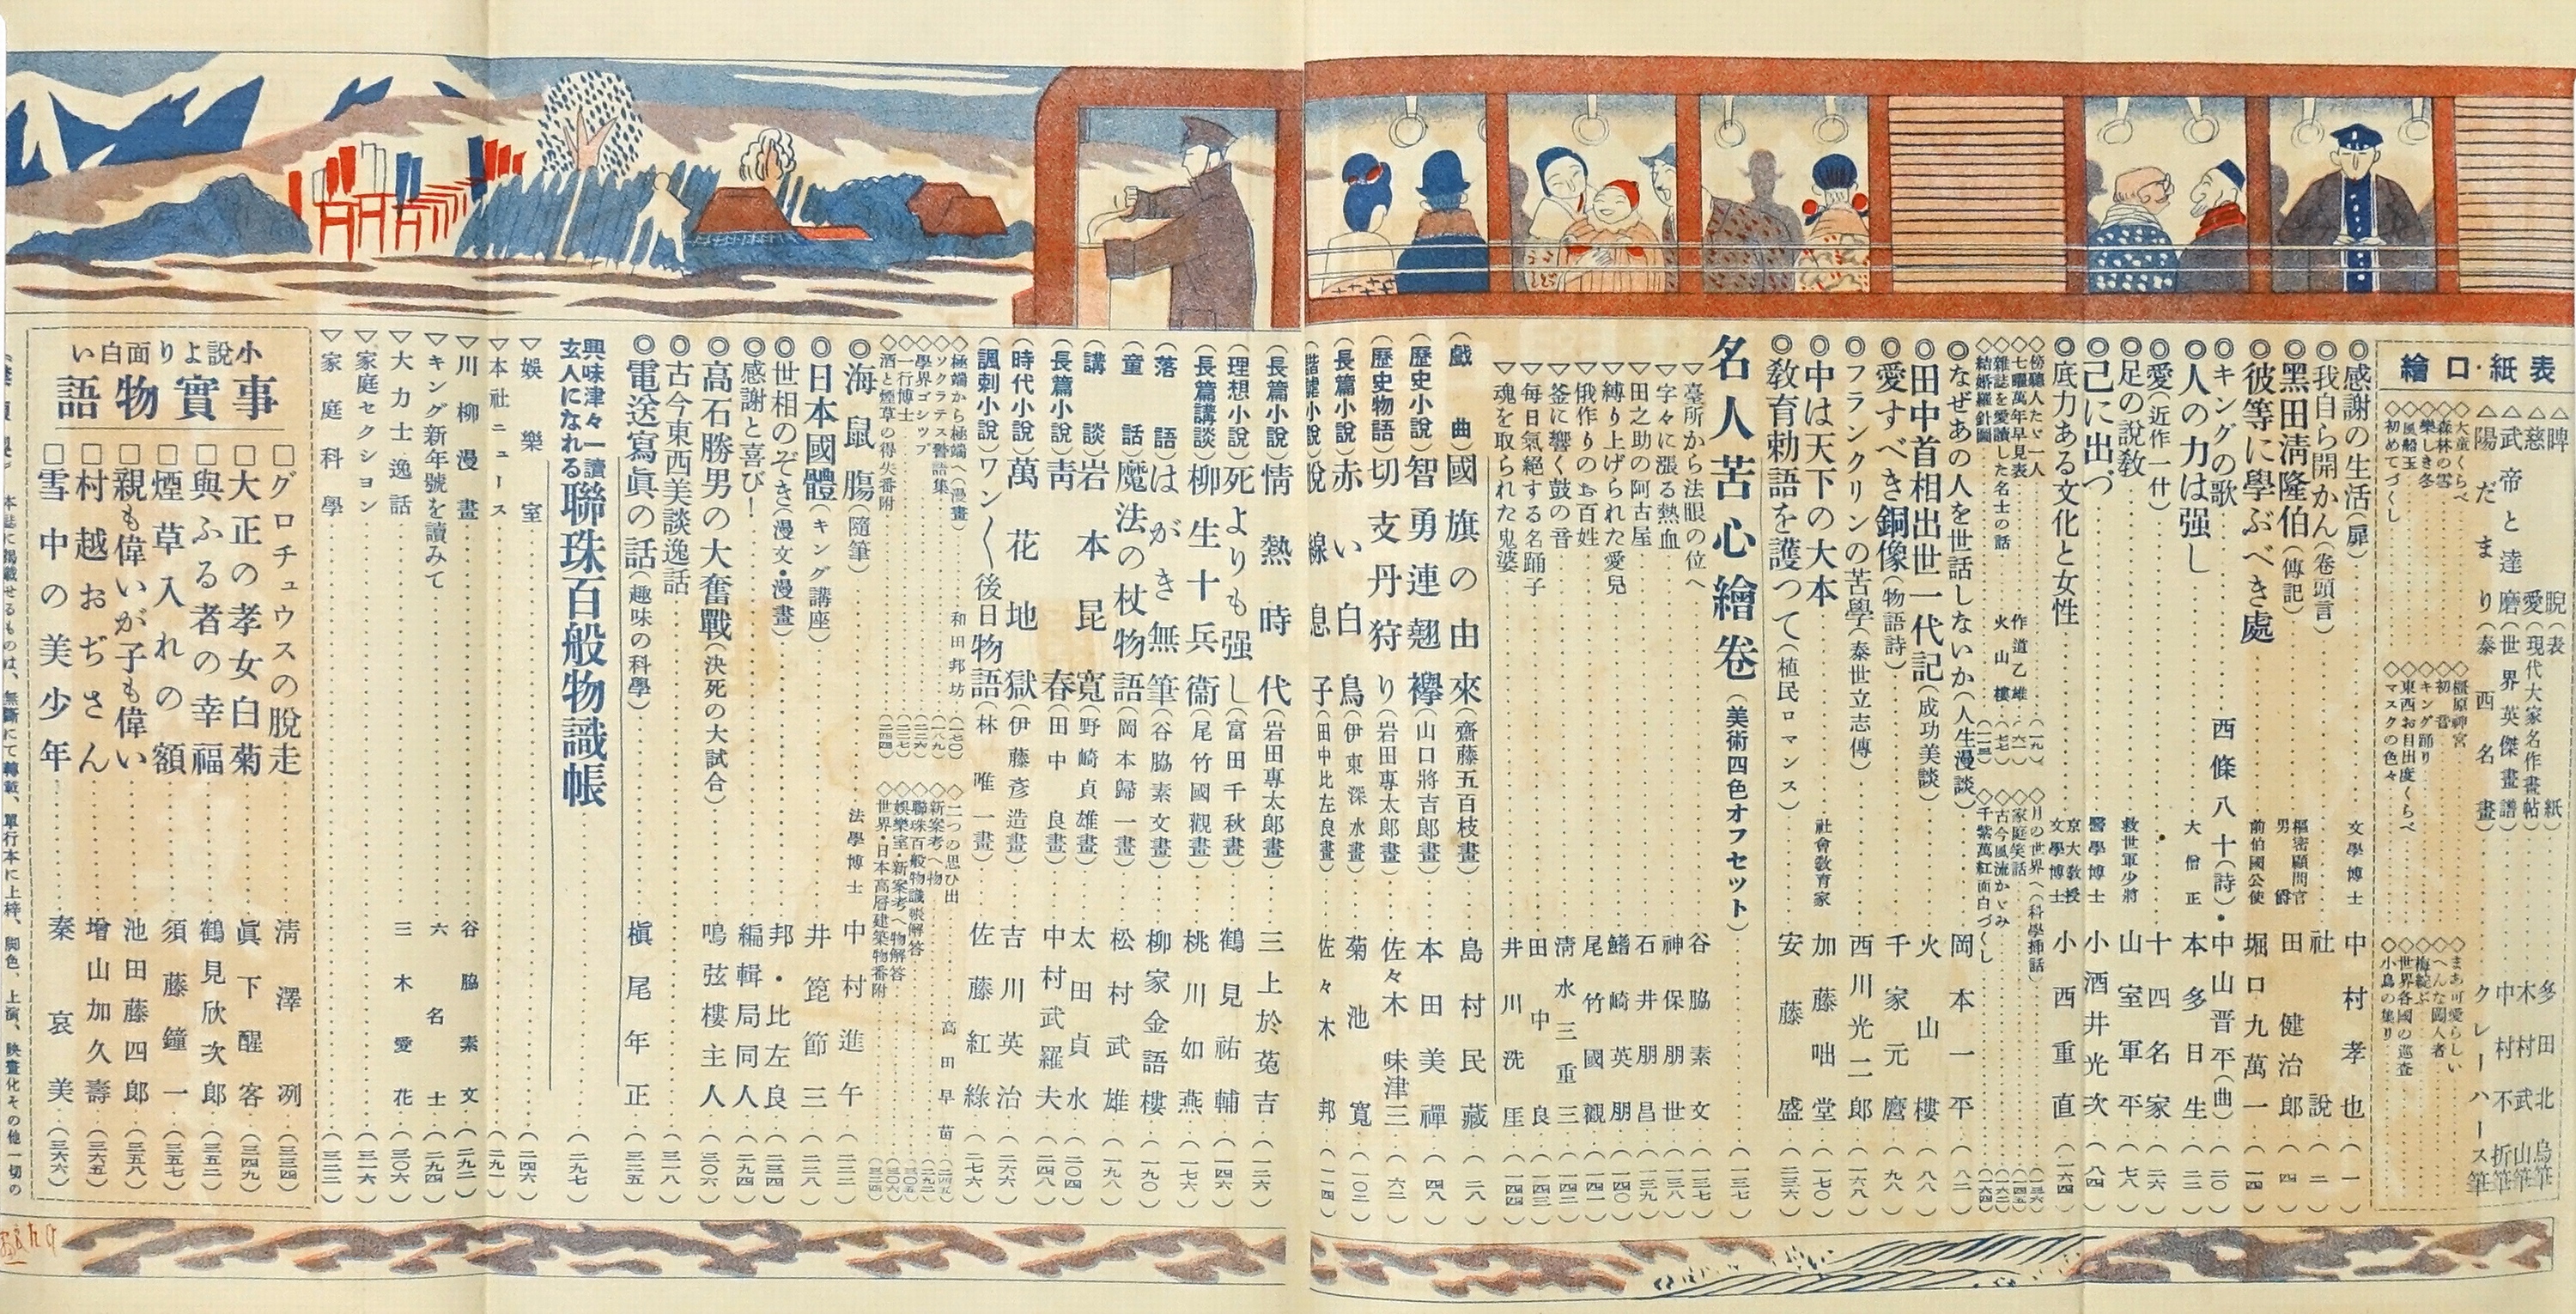 表紙・口繪
睥睨(表紙)……多田北烏筆
慈愛(現代大家名作畫帖)……木村武山筆
△武帝と達磨(世界英傑畫譜)……中村不折筆
△陽だまり(泰西名畫)……クレーハース筆
◇大童くらべ
◇森林の雪
◇樂しき冬
◇風船玉
◇初めてづくし
◇橿原神宮
◇初音
◇キング踊り
◇東西お目出度くらべ
◇マスクの色々
◇まあ可愛らしい
◇へんな闖入者
◇梅綻ぶ
◇世界各國の巡査
◇小鳥の集り
◎感謝の生活(扉)……文學博士 中村孝也(一)
◎我自ら開かん(卷頭言)……社説(二)
◎黑田淸隆伯(傳記)……樞密顧問官 男爵 田健治郎(四)
◎彼等に學ぶべき處……前伯國公使 堀口九萬一(一四)
◎キングの歌……西條八十(詩)・中山晋平(曲)(二〇)
◎人の力は强し……大僧正 本多日生(二二)
◎愛(近作一什)……十四名家(二六)
◎足の說敎……救世軍少將 山室軍平(七八)
◎己に出づ……醫學博士 小酒井光次(八四)
◎底力ある文化と女性……京大敎授 文學博士 小西重直(一六四)
◇傍聽人たゞ一人……作道乙雄(一九)
◇七曜萬年早見表……(六一)
◇雜誌を愛讀した名士の話……火山樓(七七)
◇結婚羅針圖……(一一三)
◇月の世界へ(科學揷話)……(一三六)
◇家庭笑話……(一四五)
◇古今風流かゞみ……(一六二)
◇千紫萬紅面白づくし……(一六四)
◎なぜあの人を世話しないか(人生漫談)……岡本一平(八二)
◎田中首相出世一代記(成功美談)……火山樓(八八)
◎愛すべき銅像(物語詩)……千家元麿(九八)
◎フランクリンの苦學(泰世立志傳)……西川光二郎(一六八)
◎中は天下の大本……社會敎育家 加藤咄堂(一七〇)
◎敎育勅語を護つて(植民ロマンス)……安藤盛(三三六)
名人苦心繪卷(美術四色オフセット)……(一三七)
▽臺所から法眼の位へ……谷脇素文(一三七)
▽字々に漲る熱血……神保朋世(一三八)
▽田之助の阿古屋……石井朋昌(一三九)
▽縛り上げられた愛兒……鰭崎英朋(一四〇)
▽俄作りのお百姓……尾竹國觀(一四一)
▽釜に響く鼓の音……淸水三重三(一四二)
▽每日氣絕する名踊子……田中良(一四三)
▽魂を取られた鬼婆……井川洗厓(一四四)
(戲曲)國旗の由來(齋藤五百枝畫)……島村民藏(二八)
(歷史小說)智勇連翹襷(山口將吉郎畫)……本田美禪(四八)
(歷史物語)切支丹狩り(岩田專太郎畫)……佐々木味津三(六二)
(長篇小說)赤い白鳥(伊東深水畫)……菊池寬(一〇二)
(諧謔小說)脫線息子(田中比左良畫)……佐々木邦(一一四)
(長篇小說)情熱時代(岩田專太郎畫)……三上於菟吉(一二六)
(理想小說)死よりも强し(富田千秋畫)……鶴見祐輔(一四六)
(長篇講談)柳生十兵衞(尾竹國觀畫)……桃川如燕(一七六)
(落語)はがき無筆(谷脇素文畫)……柳家金語樓(一九〇)
(童話)魔法の杖物語(岡本歸一畫)……松村武雄(一九八)
(講談)岩本昆寬(野崎貞雄畫)……太田貞水(二〇四)
(長篇小說)靑春(田中良畫)……中村武羅夫(二四八)
(時代小說)萬花地獄(伊藤彥造畫)……吉川英治(二六六)
(諷刺小說)ワン〱後日物語(林唯一畫)……佐藤紅綠(二七六)
◇極端から極端へ(漫畫)……和田邦坊(一七〇)
◇ソクラテス警語集……(一八九)
◇學界ゴシツプ……(二二六)
◇一行博士……(二二七)
◇酒と煙草の得失番附……(二四四)
◇二つの思ひ出……高田早苗(二四五)
◇新案考へ物……(二九二)
◇聯珠百般物識帳解答……(三〇五)
◇娛樂室・新案考へ物解答……(三〇六)
◇世界・日本高層建築物番附……(三二四)
◎海鼠膓(隨筆)……法學博士 中村進午(二二二)
◎日本國體(キング講座)……井箆節三(二二八)
◎世相のぞき(漫文・漫畫)……邦・比左良(二三四)
◎感謝と喜び!……編輯局同人(二九四)
◎高石勝男の大奮戰(決死の大試合)……鳴弦樓主人(三〇六)
◎古今東西美談逸話……(三一八)
◎電送寫眞の話(趣味の科學)……槇尾年正(三二五)
興味津々一讀玄人になれる 聯珠百般物識帳……(二九七)
▽娛樂室……(二四六)
▽本社ニュース……(二九一)
▽川柳漫畫……谷脇素文(二九二)
▽キング新年號を讀みて……六名士(二九四)
▽大力士逸話……三木愛花(三〇六)
▽家庭セクション……(三一六)
▽家庭科學……(三二二)
小說より面白い
事實物語
□グロチュウスの脫走……淸澤冽(三三四)
□大正の孝女白菊……眞下醒客(三四九)
□與ふる者の幸福……鶴見欣次郎(三五二)
□煙草入れの額……須藤鐘一(三五七)
□親も偉いが子も偉い……池田藤四郎(三五八)
□村越おぢさん……增山加久壽(三六五)
□雪中の美少年……秦哀美(三六六)
本誌に揭載せるものは、無斷にて轉載、單行本に上梓、脚色、上演、映畫化その他一切の